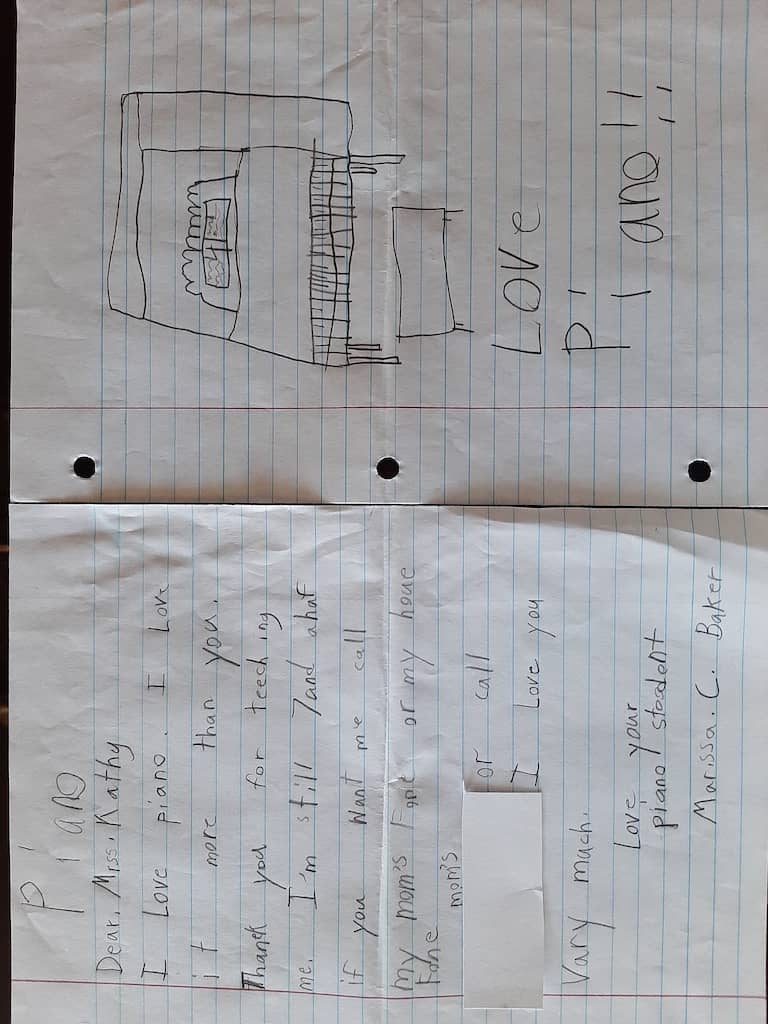 Piano
Dear. Miss. Kathy
I Love piano. I Love
it more than you.
Thanek you for teeching
me. I'm still 7and ahaf
if you Want me call
my mom's Fone or my houe
Fone mom's
or call
I Love you
Vary much.
Love your
piano stoodent
Marissa. C. Baker
Love
Piano!!